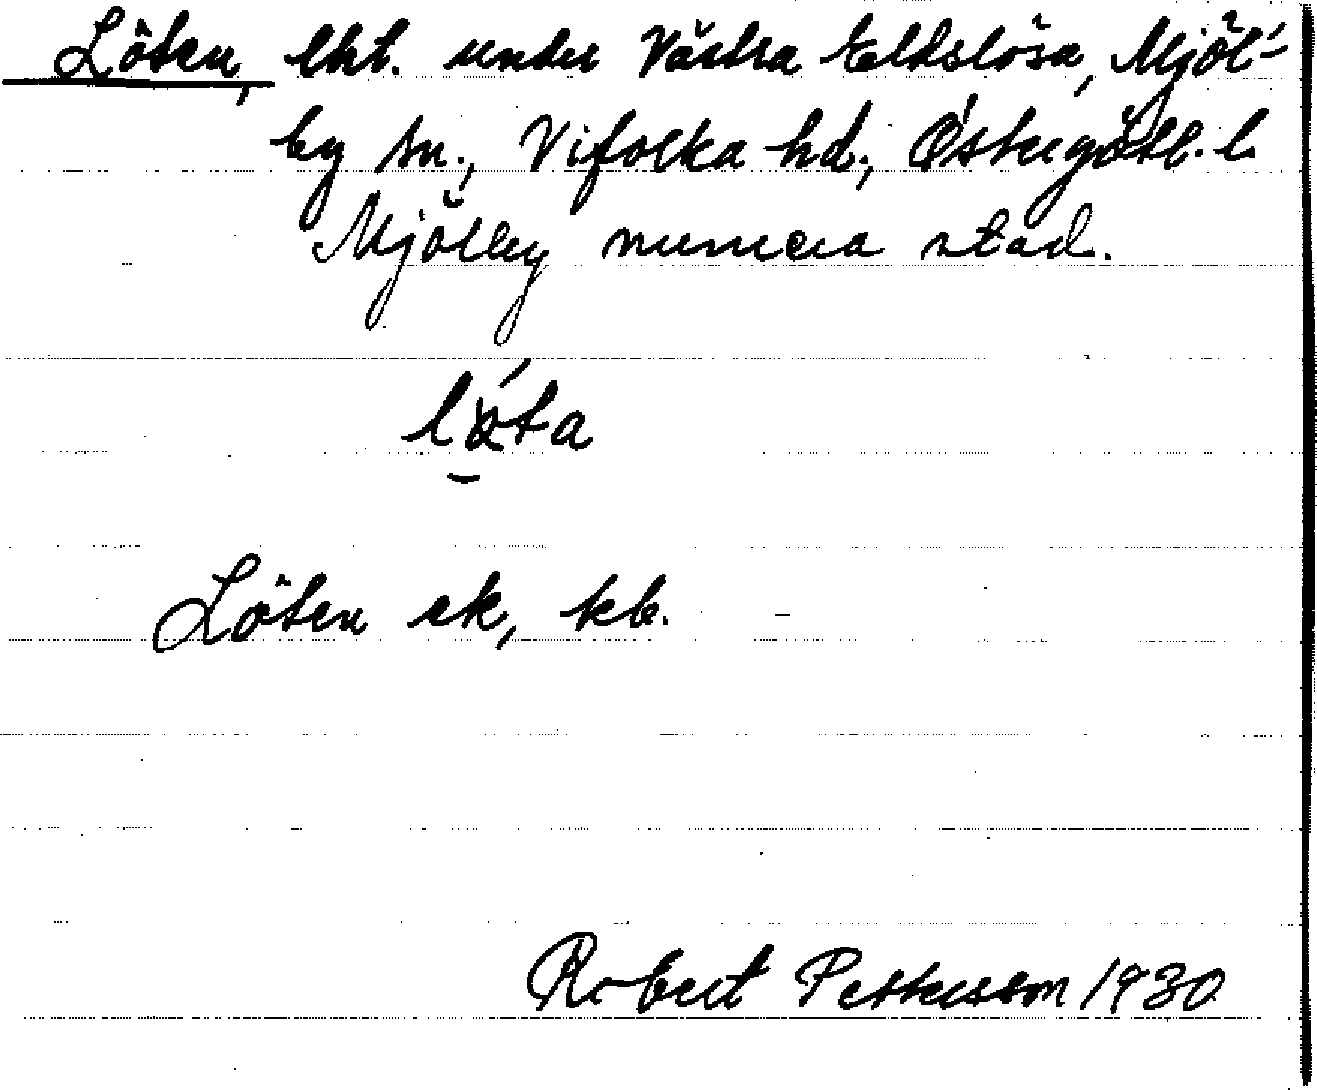 Löten, lht. under Västra Eldslösa, Mjöl-
by sn., Vifolka hd., Östergötl. l.
Mjölby numera stad.
Löten ek, kb.
Robert Pettersson 1930